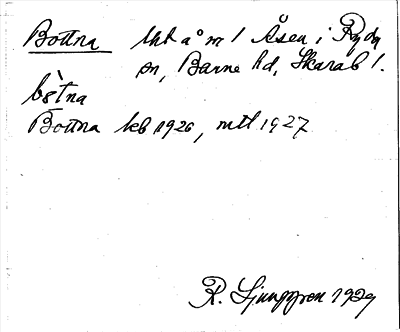 Bottna Uht å m / Åsen i Ryda
sn, Barne hd, Skarab l.
bòtna
Bottna kb 1920, mtl 1927
R. Ljunggren 1929